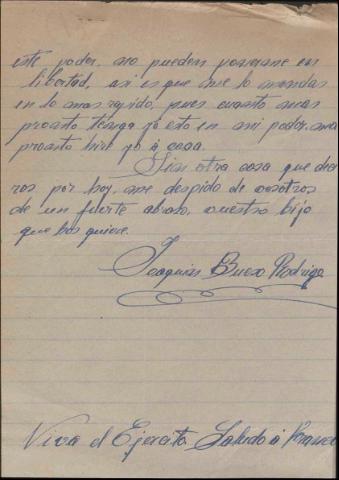 este poder, no pueden ponerme en
libertad, asi es que me lo mandas
en lo mas rapido, pues cuanto mas
pronto tenga yo esto en mi poder, mas
pronto hire yo á casa.
Sin otra cosa que deci
ros por hoy, me despido de vosotros
de un fuerte abrazo, vuestro hijo
que hos quiere.
Joaquin Bueso Rodrigo
Viva el Ejercito Saludo á Franco